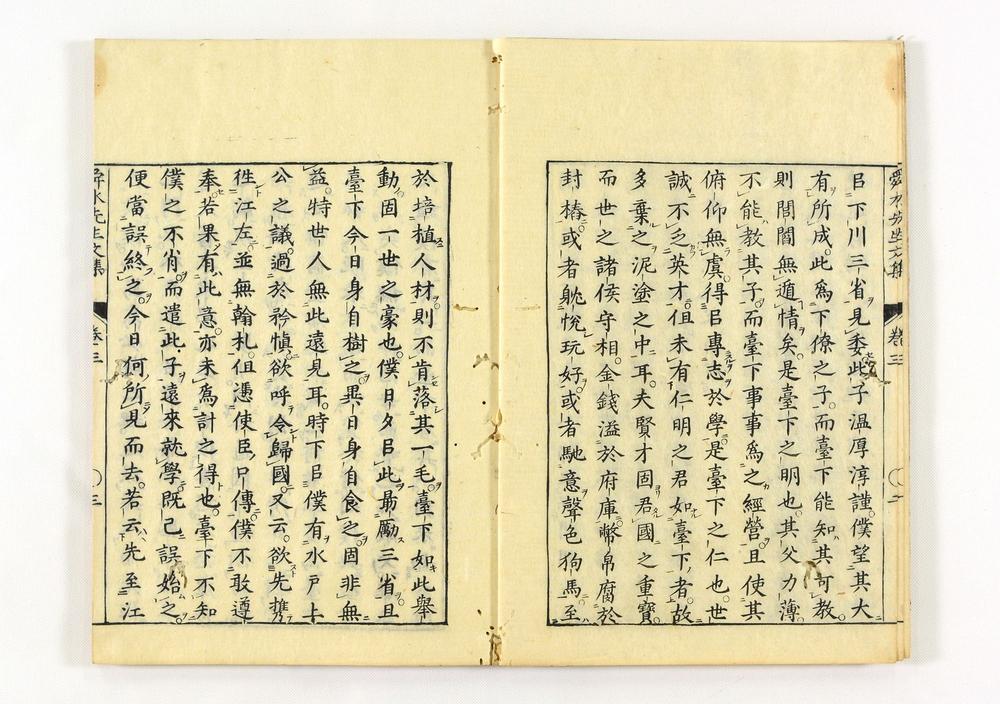 舜水先生文集
卷三
㠯下川三省見委此子温厚淳謹僕望其大
有所成此爲下僚之子而臺下能知其可教
則閭閻無遁情矣是臺下之明也其父力薄
不能教其子而臺下事事爲之經營且使其
俯仰無虞得㠯專志於學是臺下之仁也世
誠不乏英才但未有仁明之君如臺下者故
多棄之泥塗之中耳夫賢才固君國之重寶
而世之諸侯守相金錢溢於府庫幣帛腐於
封樁或者躭悅玩好或者馳意聲色狗馬至
於培植人材則不肯落其一毛臺下如此舉
動固一世之豪也僕日夕㠯此勗勵三省且
臺下今日身自樹之異日身自食之固非無
益特世人無此遠見耳時下㠯僕有水戶上
公之議過於矜慎欲呼令歸國又云欲先攜
徃江左並無翰札但憑使臣口傳僕不敢遵
奉若果有此意亦未爲計之得也臺下不知
僕之不肖而遣此子遠來就學既已誤始之
便當誤終之今日何所見而去若云先至江
舜水先生文集
卷三
三